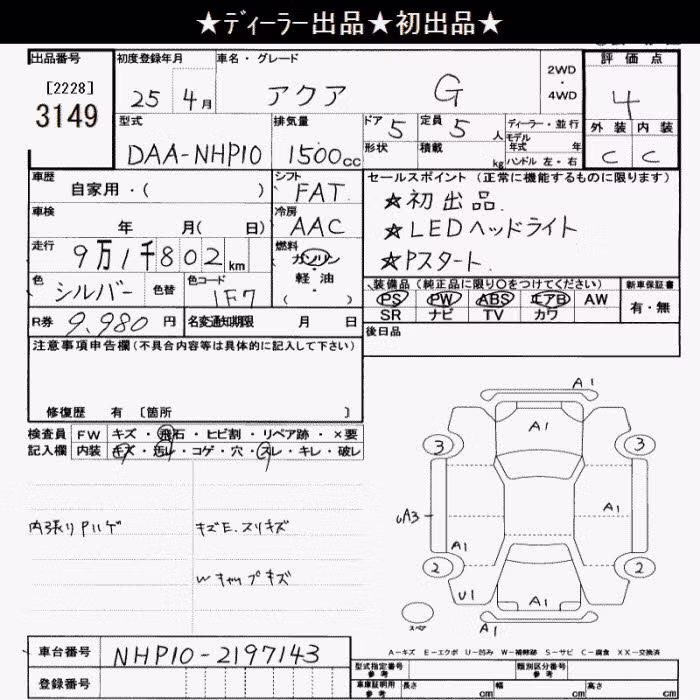 ★ディーラー出品★初出品★
出品番号
[2228]
3149
初度登録年月
25 年 4 月
車名・グレード
アクア G
2WD
・
4WD
評価点
4
外装 内装
C C
型式
DAA-NHP10
排気量
1500cc
ドア 5
定員 5 人
形状
積載 kg
ディーラー・並行
モデル年式 年
ハンドル 左・右
車歴
自家用・( )
シフト
FAT
車検
年 月( 日)
冷房
AAC
走行
9万1千802km
燃料
ガソリン
軽・油
( ・ )
色
シルバー
色替
色コード
1F7
R券 9,980 円
名変通知期限 月 日
セールスポイント(正常に機能するものに限ります)
★初出品
★LEDヘッドライト
★Pスタート
装備品(純正品に限り○をつけてください)
PS PW ABS エアB AW
SR ナビ TV カワ
新車保証書
有・無
後日品
注意事項申告欄(不具合内容等は具体的に記入して下さい)
修復歴 有 [箇所 ]
検査員
記入欄
FW キズ・飛石・ヒビ割・リペア跡・×要
内装 キズ・汚レ・コゲ・穴・スレ・キレ・破レ
内張りPハゲ
キズE.スリキズ
wキャップキズ
A1
A1
3 3
A1
uA3
A1
2 2
U1
A1
A1
スペア
A-キズ E-エクボ U-凹み W-補修跡 S-サビ C-腐食 XX-交換済
車台番号
NHP10-2197143
登録番号
型式指定番号
参考
類別区分番号
参考
車庫証明用
参考
長さ cm 幅 cm 高さ cm